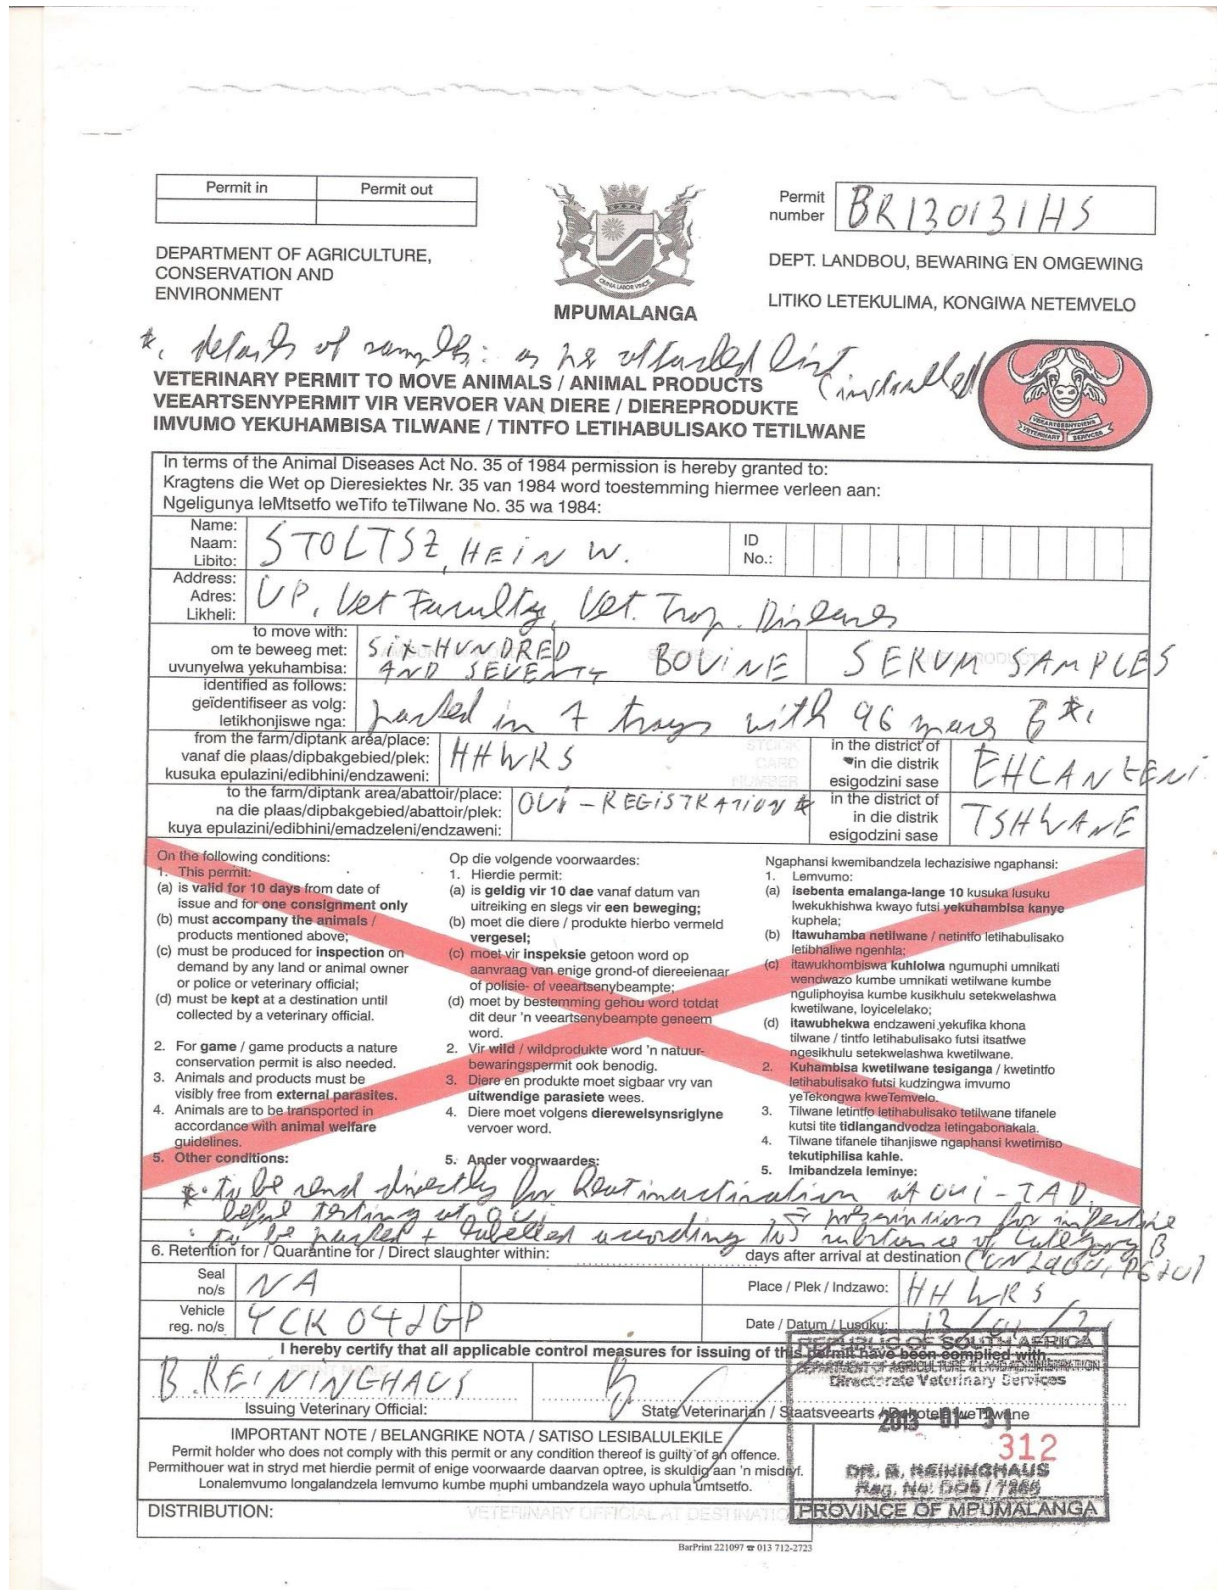 Permit in
Permit out
Permit number BR130131HS
DEPARTMENT OF AGRICULTURE,
CONSERVATION AND
ENVIRONMENT
OMNIA LABOR VINCIT
MPUMALANGA
DEPT. LANDBOU, BEWARING EN OMGEWING
LITIKO LETEKULIMA, KONGIWA NETEMVELO
*. details of samples: as per attached list
VETERINARY PERMIT TO MOVE ANIMALS / ANIMAL PRODUCTS
VEEARTSENYPERMIT VIR VERVOER VAN DIERE / DIEREPRODUKTE
IMVUMO YEKUHAMBISA TILWANE / TINTFO LETIHABULISAKO TETILWANE
VEEARTSENYDIENS
VETERINARY SERVICES
In terms of the Animal Diseases Act No. 35 of 1984 permission is hereby granted to:
Kragtens die Wet op Dieresiektes Nr. 35 van 1984 word toestemming hiermee verleen aan:
Ngeligunya leMtsetfo weTifo teTilwane No. 35 wa 1984:
Name:
Naam:
Libito:
STOLTSZ, HEIN W.
ID
No.:
Address:
Adres:
Likheli:
UP, Vet Faculty, Vet. Trop. Diseases
to move with:
om te beweeg met:
uvunyelwa yekuhambisa:
SIX-HUNDRED
AND SEVENTY
BOVINE
SERUM SAMPLES
identified as follows:
geïdentifiseer as volg:
letikhonjiswe nga:
packed in 7 trays with 96
from the farm/diptank area/place:
vanaf die plaas/dipbakgebied/plek:
kusuka epulazini/edibhini/endzaweni:
HHWRS
STOCK
CARD
NUMBER
in the district of
in die distrik
esigodzini sase
EHLANZENI
to the farm/diptank area/abattoir/place:
na die plaas/dipbakgebied/abattoir/plek:
kuya epulazini/edibhini/emadzeleni/endzaweni:
OVI - REGISTRATION *
in the district of
in die distrik
esigodzini sase
TSHWANE
On the following conditions:
1. This permit:
(a) is valid for 10 days from date of
issue and for one consignment only
(b) must accompany the animals /
products mentioned above;
(c) must be produced for inspection on
demand by any land or animal owner
or police or veterinary official;
(d) must be kept at a destination until
collected by a veterinary official.
2. For game / game products a nature
conservation permit is also needed.
3. Animals and products must be
visibly free from external parasites.
4. Animals are to be transported in
accordance with animal welfare
guidelines.
5. Other conditions:
Op die volgende voorwaardes:
1. Hierdie permit:
(a) is geldig vir 10 dae vanaf datum van
uitreiking en slegs vir een beweging;
(b) moet die diere / produkte hierbo vermeld
vergesel;
(c) moet vir inspeksie getoon word op
aanvraag van enige grond-of diereeienaar
of polisie- of veeartsenybeampte;
(d) moet by bestemming gehou word totdat
dit deur 'n veeartsenybeampte geneem
word.
2. Vir wild / wildprodukte word 'n natuur-
bewaringspermit ook benodig.
3. Diere en produkte moet sigbaar vry van
uitwendige parasiete wees.
4. Diere moet volgens dierewelsynsriglyne
vervoer word.
5. Ander voorwaardes:
Ngaphansi kwemibandzela lechazisiwe ngaphansi:
1. Lemvumo:
(a) isebenta emalanga-lange 10 kusuka lusuku
lwekukhishwa kwayo futsi yekuhambisa kanye
kuphela;
(b) Itawuhamba netilwane / netintfo letihabulisako
letibhaliwe ngenhla;
(c) itawukhombiswa kuhlolwa ngumuphi umnikati
wendwazo kumbe umnikati wetilwane kumbe
nguliphoyisa kumbe kusikhulu setekwelashwa
kwetilwane, loyicelelako;
(d) itawubhekwa endzaweni yekufika khona
tilwane / tintfo letihabulisako futsi itsatfwe
ngesikhulu setekwelashwa kwetilwane.
2. Kuhambisa kwetilwane tesiganga / kwetintfo
letihabulisako futsi kudzingwa imvumo
yeTekongwa kweTemvelo.
3. Tilwane letintfo letihabulisako tetilwane tifanele
kutsi tite tidlangandvodza letingabonakala.
4. Tilwane tifanele tihanjiswe ngaphansi kwetimiso
tekutiphilisa kahle.
5. Imibandzela leminye:
*. to be send directly for heat inactivation at OVI - TAD
before testing at OVI
: to be packed + labelled according to prescriptions for infectious substance of Category B
6. Retention for / Quarantine for / Direct slaughter within: days after arrival at destination
Seal
no/s
NA
Place / Plek / Indzawo: HHWRS
Vehicle
reg. no/s
YCK 042GP
Date / Datum / Lusuku:
I hereby certify that all applicable control measures for issuing of this permit have been complied with
B. REININGHAUS
Issuing Veterinary Official:
State Veterinarian / Staatsveearts
REPUBLIC OF SOUTH AFRICA
Directorate Veterinary Services
2013 -01- 31
312
DR. B. REININGHAUS
PROVINCE OF MPUMALANGA
IMPORTANT NOTE / BELANGRIKE NOTA / SATISO LESIBALULEKILE
Permit holder who does not comply with this permit or any condition thereof is guilty of an offence.
Permithouer wat in stryd met hierdie permit of enige voorwaarde daarvan optree, is skuldig aan 'n misdryf.
Lonalemvumo longalandzela lemvumo kumbe muphi umbandzela wayo uphula umtsetfo.
DISTRIBUTION:
VETERINARY OFFICIAL AT DESTINATION
BarPrint 221097 ☎ 013 712-2723